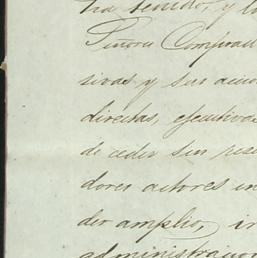 ha tenido, y la
Señora Comprad
sivas y sus accio
directas, ejecutivas
de ceder sin rese
dores actores en
der amplio, ir
administracion